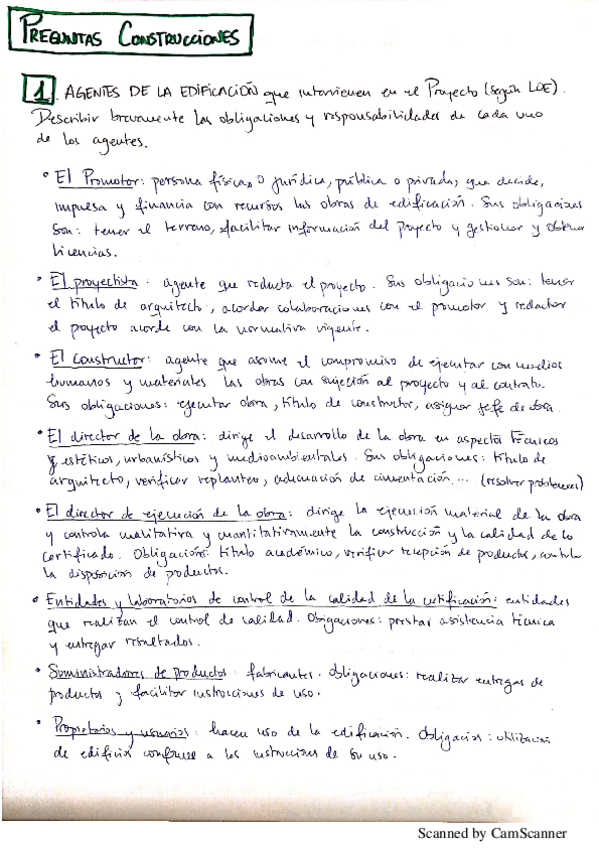 PREGUNTAS CONSTRUCCIONES
1. AGENTES DE LA EDIFICACIÓN que intervienen en el Proyecto (según LOE).
Describir brevemente las obligaciones y responsabilidades de cada uno
de los agentes.
• El Promotor: persona física o jurídica, pública o privada, que decide,
impulsa y financia con recursos las obras de edificación. Sus obligaciones
son: tener el terreno, facilitar información del proyecto y gestionar y obtener
licencias.
• El proyectista: agente que redacta el proyecto. Sus obligaciones son: tener
el título de arquitecto, acordar colaboraciones con el promotor y redactar
el proyecto acorde con la normativa vigente.
• El constructor: agente que asume el compromiso de ejecutar con medios
humanos y materiales las obras con sujeción al proyecto y al contrato.
Sus obligaciones: ejecutar obra, título de constructor, asignar jefe de obra.
• El director de la obra: dirige el desarrollo de la obra en aspectos técnicos
estéticos, urbanísticos y medioambientales. Sus obligaciones: título de
arquitecto, verificar replanteo, adecuación de cimentación... (resolver problemas)
• El director de ejecución de la obra: dirige la ejecución material de la obra
y controla cualitativa y cuantitativamente la construcción y la calidad de lo
certificado. Obligación: título académico, verificar recepción de productos, controlar
la disposición de productos.
• Entidades y laboratorios de control de la calidad de la edificación: entidades
que realizan el control de calidad. Obligaciones: prestar asistencia técnica
y entregar resultados.
• Suministradores de productos: fabricantes. Obligaciones: realizar entregas de
productos y facilitar instrucciones de uso.
• Propietarios y usuarios: hacen uso de la edificación. Obligacios: utilización
de edificios conforme a las instrucciones de su uso.
Scanned by CamScanner